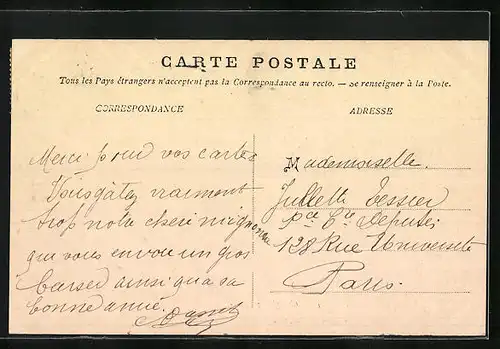 CARTE POSTALE
Tous les Pays étrangers n'acceptent pas la Correspondance au recto. — Se renseigner à la Poste.
CORRESPONDANCE
ADRESSE
Merci pour vos cartes
Vous gâtez vraiment
trop notre cheri mignonne
que vous envoi un gros
baiser ainsi qua sa
bonne amie.
Mademoiselle.
Juliette Tessier
128 Rue Université
Paris.